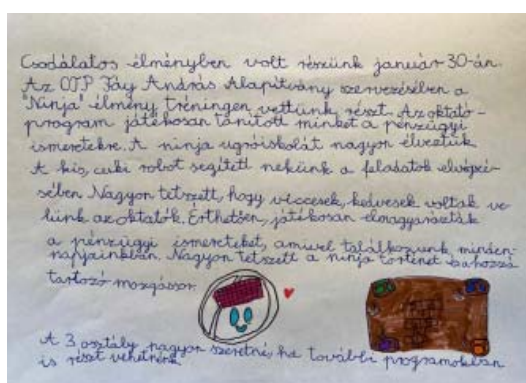 Csodálatos élményben volt részünk január 30-án.
Az OTP Fáy András Alapítvány szervezésében a
"Ninja" élmény tréningen vettünk részt. Az oktató-
program játékosan tanított minket a pénzügyi
ismeretekre. A ninja ugróiskolát nagyon élveztük.
A kis, cuki robot segített nekünk a feladatok elvégzé-
sében. Nagyon tetszett, hogy viccesek, kedvesek voltak ve-
lünk az oktatók. Érthetően, játékosan elmagyarázták
a pénzügyi ismereteket, amivel találkozunk minden-
napjainkban. Nagyon tetszett a ninja történet s a hozzá
tartozó mozgássor.
A 3. osztály nagyon szeretné, ha további programokban
is részt vehetnénk.